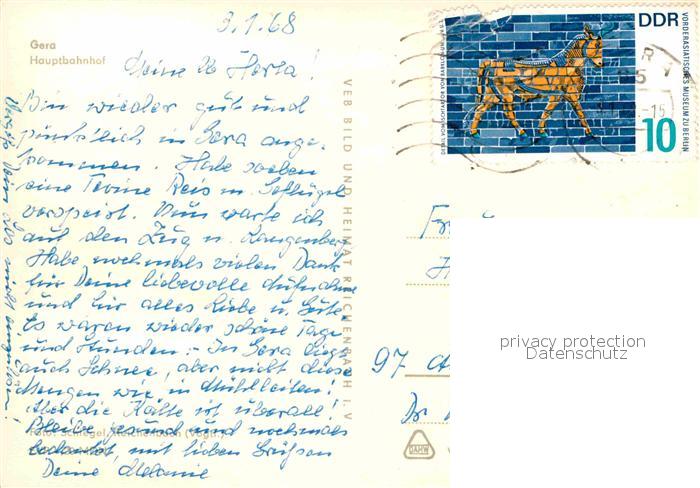 3.1.68
Gera
Hauptbahnhof
Meine lb Herta!
Bin wieder gut und
pünktlich in Gera ange-
kommen. Habe soeben
eine Terrine Reis m. Geflügel
verspeist. Nun warte ich
auf den Zug n. Langenberg
Habe nochmals vielen Dank
für Deine liebevolle Aufnahme
und für alles Liebe u. Gute.
Es waren wieder schöne Tage
und Stunden. - In Gera liegt
auch Schnee, aber nicht diese
Mengen wie in Mühlleiten!
Aber die Kälte ist überall!
Bleibe gesund und nochmals
bedankt, mit lieben Grüßen
Deine Melanie
Foto: Schlegel, Reichenbach (Vogtl.)
VEB BILD UND HEIMAT REICHENBACH I. V.
DDR
10
VORDERASIATISCHES MUSEUM ZU BERLIN
97
Dr
DAHW
privacy protection
Datenschutz